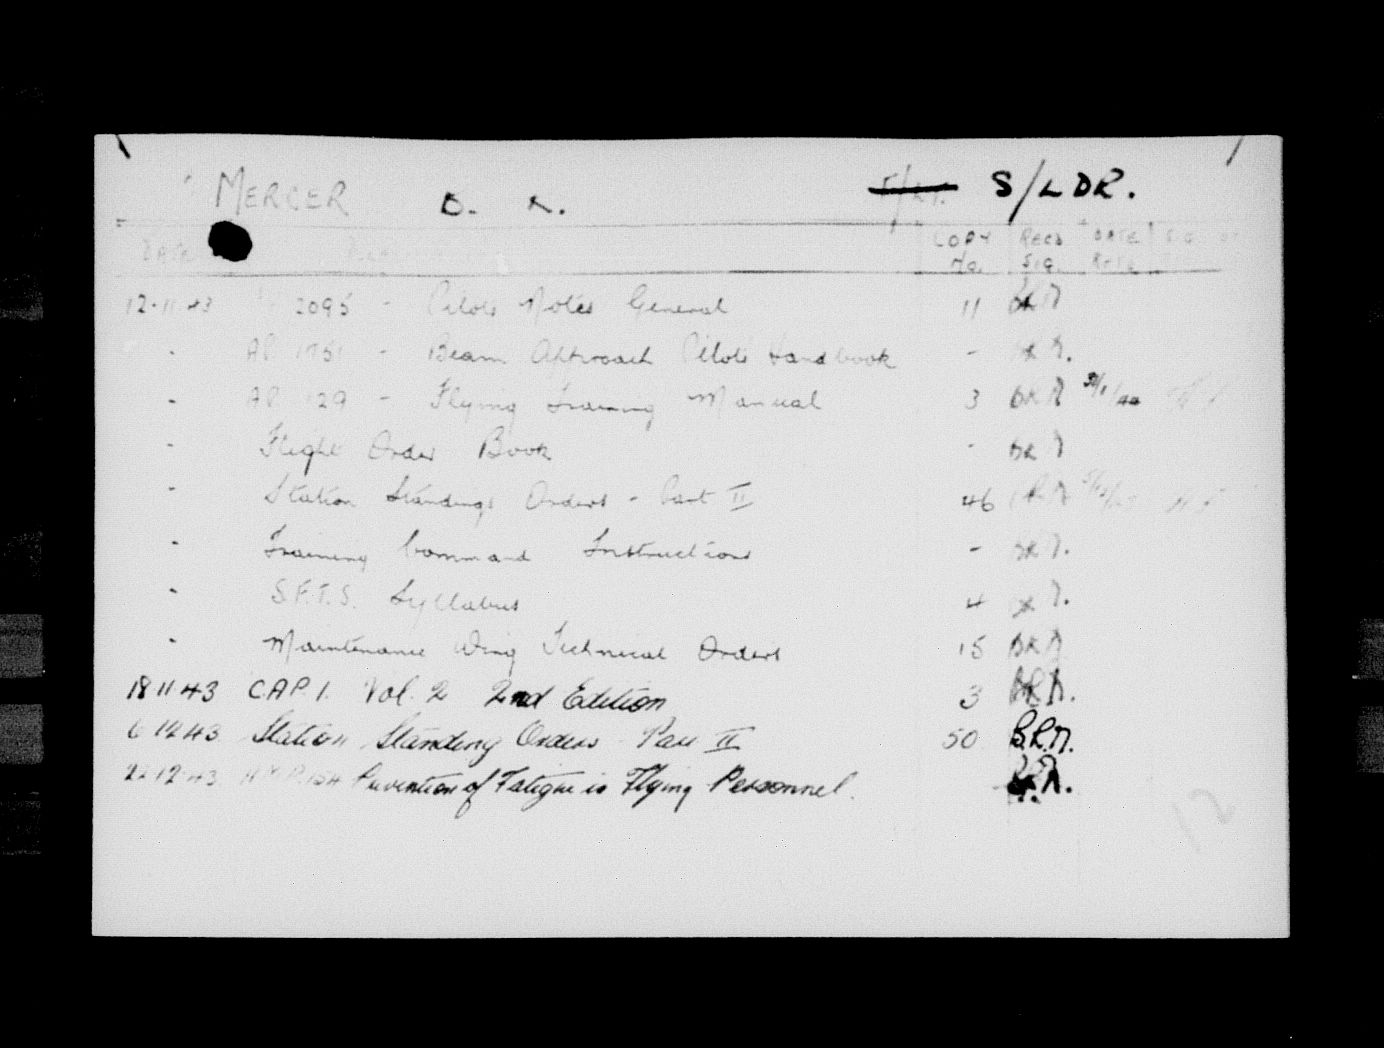 MERCER B. R. F/LT. S/LDR.
DATE COPY No. RECD Sig. DATE RETD SIG. OF
12-11-43 2095 - Pilots Notes General 11 BRM
" AP 1751 - Beam Approach Pilots Handbook - BRM.
" AP 129 - Flying Training Manual 3 BRM
" Flight Order Book - BRM
" Station Standings Orders - Part II 46 BRM
" Training Command Instructions - BRM.
" S.F.T.S. Syllabus 4 BRM.
" Maintenance Wing Technical Orders 15 BRM
18 11 43 C.A.P. 1. Vol. 2 2nd Edition 3 BRM.
6 12 43 Station Standing Orders - Part II 50 B.R.M.
22 12 43 Prevention of Fatigue in Flying Personnel. - B.R.M.
12